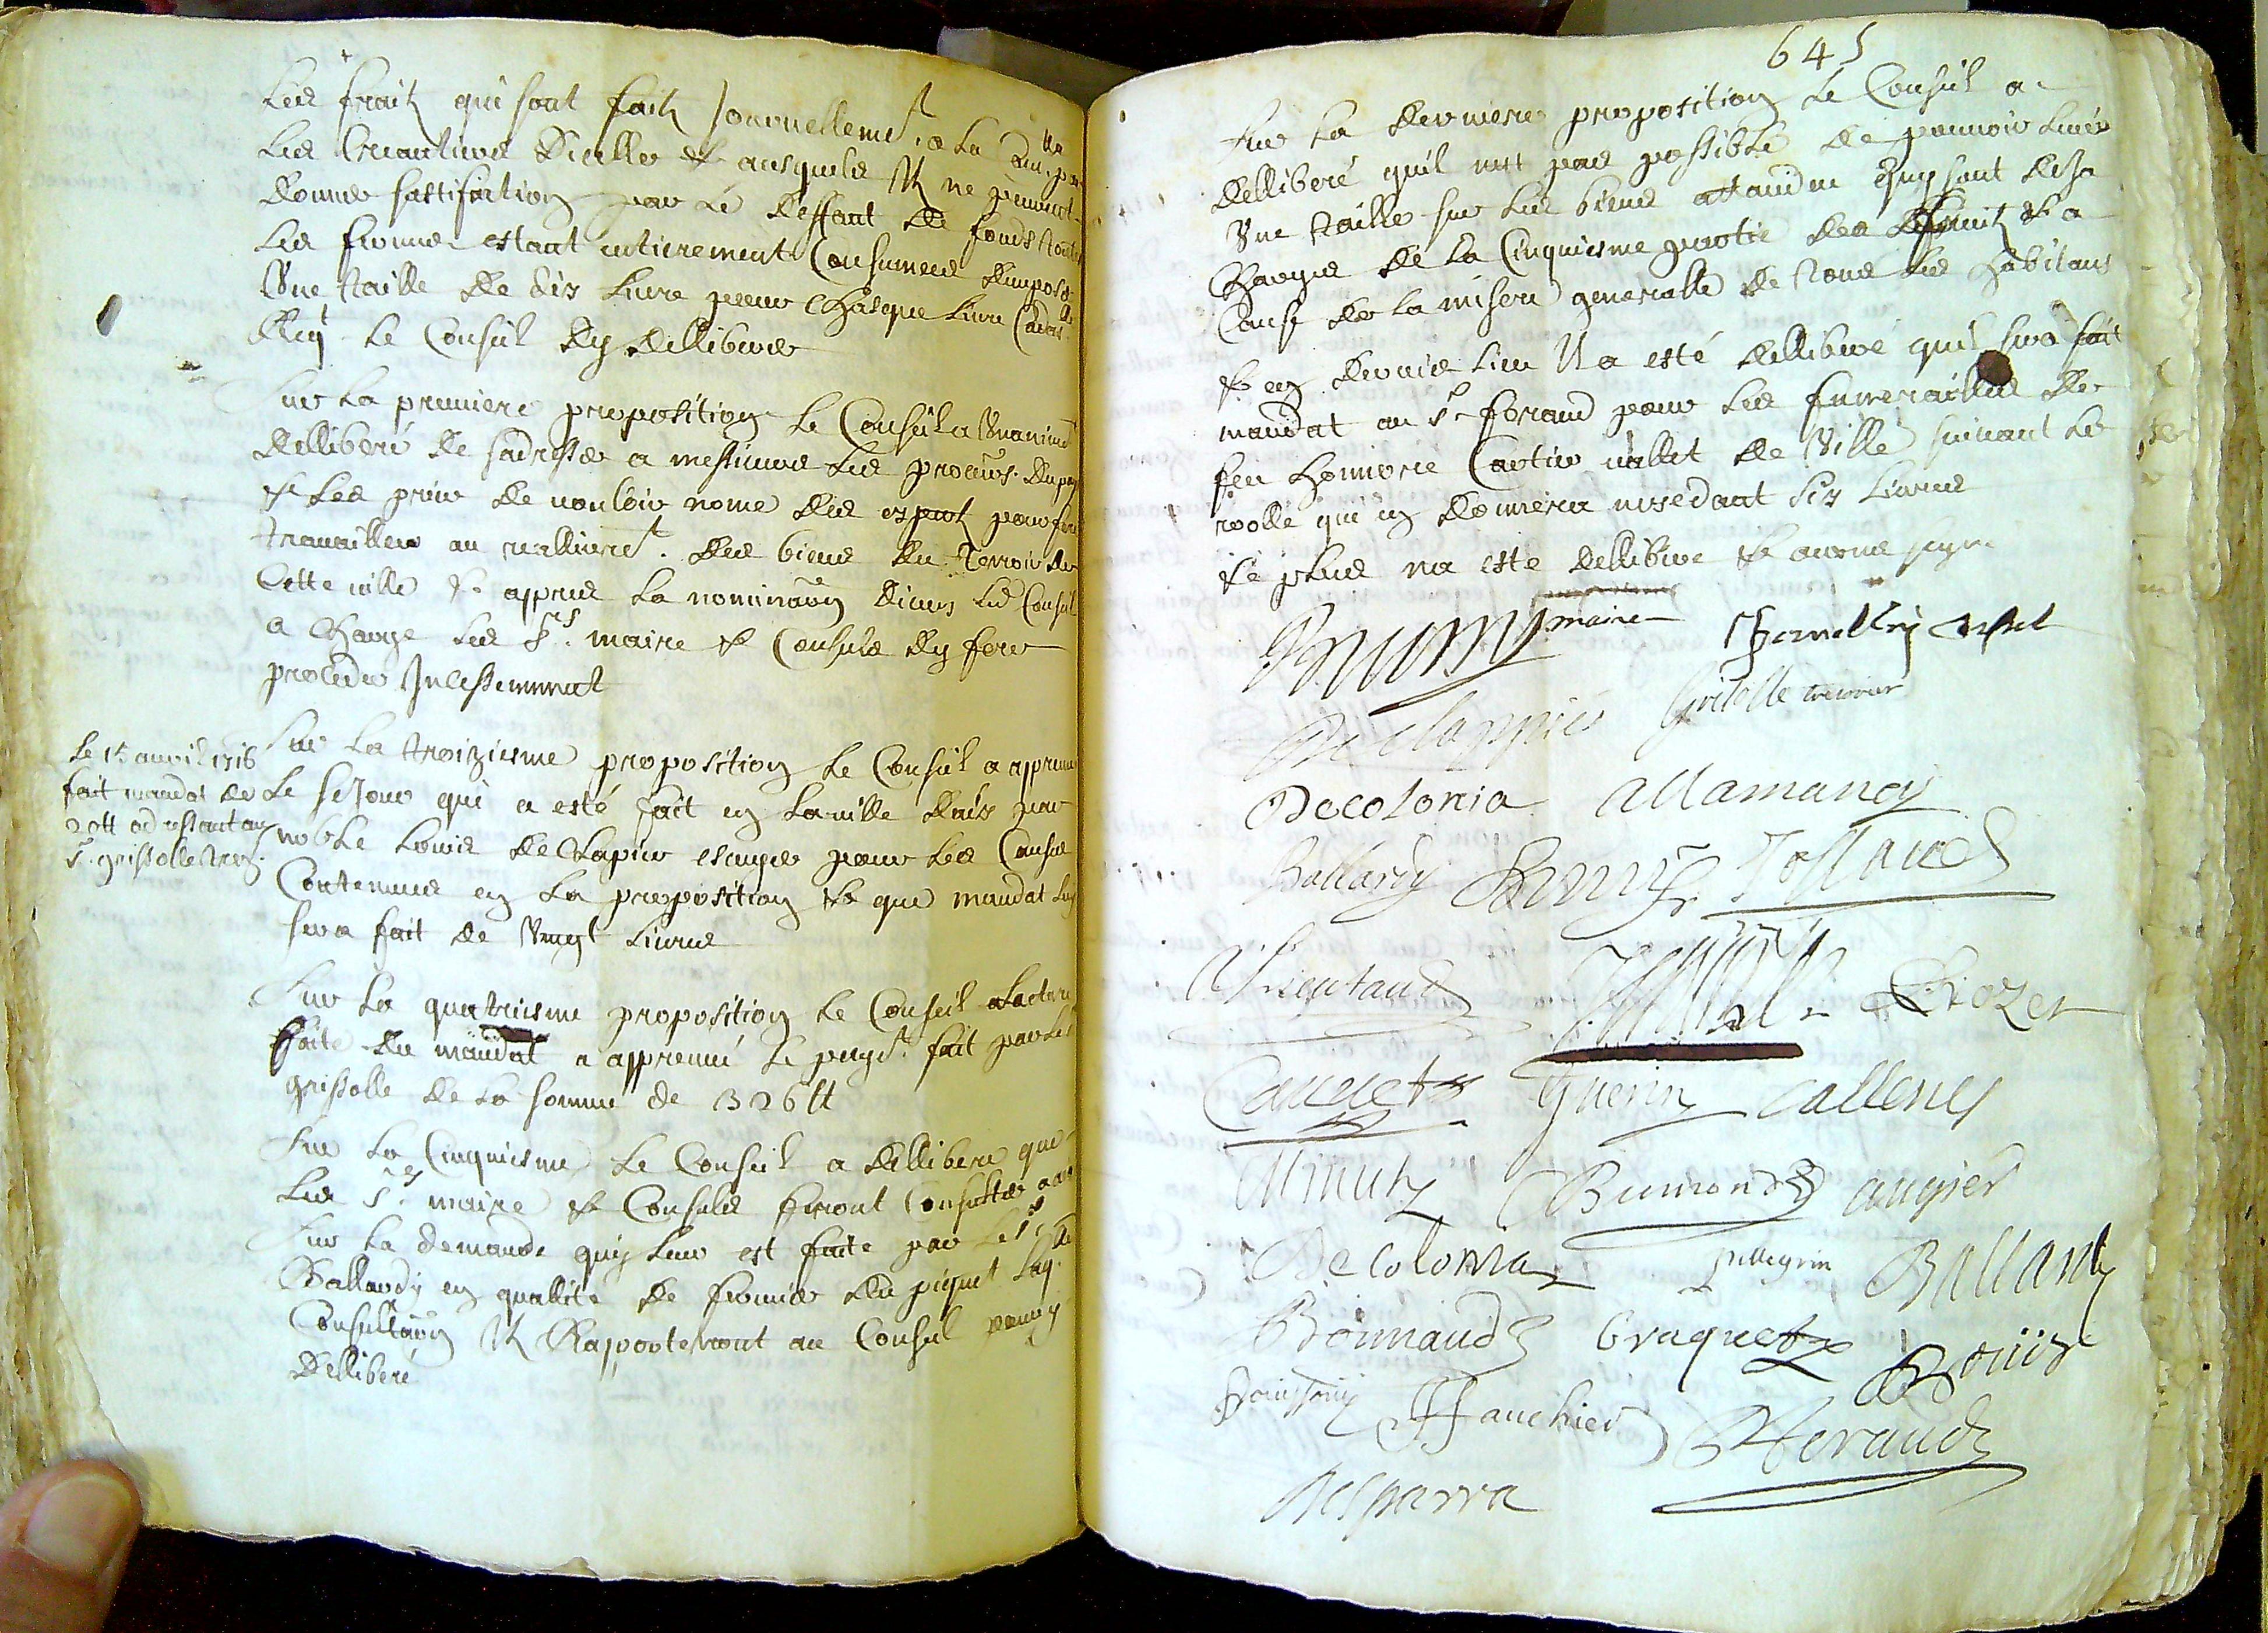 les fraiz qui sont faitz Journellemt. a la Comté par
les Creantiers dicelle & ausquels Ilz ne peuvent
donner sattisfaction par le deffaut de fonds toutes
les fermes estant entierement Consumees dimposer
Une taille de dix livre pour Chasque livre Cadastralle
Reqt le Conseil dy dellibérer
Sur la premiere proposition le Conseil a Unanimt
delliberé de sadresser a messieurs les procurs. du pays
& les prier de vouloir nomé des espertz pour fere
travailler au reallivremt. des biens du Terroir de
Cette ville & appres la nominaõn diceux led Conseil
a Charge les Srs. maire & Consuls dy fere
proceder Incessemment
le 15 avril 1716
fait mandat de
20ll adressant au
Sr. grissolle trezr.
Sur la troiziesme proposition le Conseil a appreuvé
le seJour qui a esté fait en la ville daix par
noble Louis de Clapier escuyer pour les Causes
Contenues en la proposition & que mandat luy
sera fait de Vingt livres
Sur la quatriesme proposition le Conseil alacture
faite du mandat a appreuvé le payt. fait par led
grissolle de la somme de 1326ll
Sur la Cinquiesme le Conseil a delliberé que
les Srs. maire & Consuls feront Consulter
Sur la demande quy leur est faite par le Sr. de
Ballardy en quallité de fermier du piquet laq.
Consultaõn Ilz Rapporteront au Conseil pour y
delliberé
645
Sur la derniere proposition le Conseil a
delliberé quil nest pas possible de pouvoir livér
Une taille sur les biens attandu quy sont desja
Charges de la Cinquiesme partie des fruitz & a
Cause de la misere generalle de tous les habitans
& en dernier lieu Il a esté delliberé quil sera fait
mandat au Sr feraud pour les funerailles de
feu honnoré Cartier vallet de Ville suivant le
rolle qui en donnera nexedant six livres
& plus na este dellibere & avons signe
Bruny maire
Declappiés Grisolle tresorier
Decolonia allamanoy
Ballardy Bruny Jossaud
Lieutaud Crozet
Cauvet Guerin Callenes
Minuty Bumond augier
Decolonia pellegrin Ballardy
Bonnaud Braquet Bouis
Fauchier Feraud
Desparra